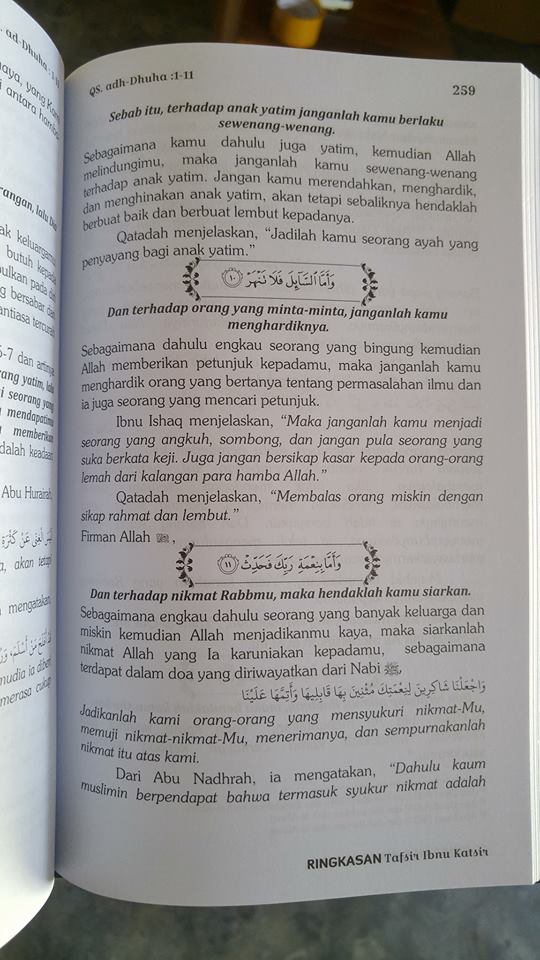 . ad-Dhuha : 1-11
haya, yang Kami
di antara hamba
rangan, lalu Dia
ak keluargamu
butuh kepada
pulkan pada di
g bersabar dan
antiasa tercurah
6-7 dan artinya
rang yatim, lalu
ai seorang yang
u mendapatimu
u memberikan
dalah keadaan
Abu Hurairah,
لَيْسَ الْغِنَى عَنْ كَثْرَةِ
a, akan tetapi
a mengatakan,
قَدْ أَفْلَحَ مَنْ أَسْلَمَ، وَرُ
mudia ia diberi
merasa cukup
QS. adh-Dhuha :1-11
259
Sebab itu, terhadap anak yatim janganlah kamu berlaku
sewenang-wenang.
Sebagaimana kamu dahulu juga yatim, kemudian Allah
melindungimu, maka janganlah kamu sewenang-wenang
terhadap anak yatim. Jangan kamu merendahkan, menghardik,
dan menghinakan anak yatim, akan tetapi sebaliknya hendaklah
berbuat baik dan berbuat lembut kepadanya.
Qatadah menjelaskan, “Jadilah kamu seorang ayah yang
penyayang bagi anak yatim.”
وَأَمَّا ٱلسَّآئِلَ فَلَا تَنْهَرْ ١٠
Dan terhadap orang yang minta-minta, janganlah kamu
menghardiknya.
Sebagaimana dahulu engkau seorang yang bingung kemudian
Allah memberikan petunjuk kepadamu, maka janganlah kamu
menghardik orang yang bertanya tentang permasalahan ilmu dan
ia juga seorang yang mencari petunjuk.
Ibnu Ishaq menjelaskan, “Maka janganlah kamu menjadi
seorang yang angkuh, sombong, dan jangan pula seorang yang
suka berkata keji. Juga jangan bersikap kasar kepada orang-orang
lemah dari kalangan para hamba Allah.”
Qatadah menjelaskan, “Membalas orang miskin dengan
sikap rahmat dan lembut.”
Firman Allah ﷻ,
وَأَمَّا بِنِعْمَةِ رَبِّكَ فَحَدِّثْ ١١
Dan terhadap nikmat Rabbmu, maka hendaklah kamu siarkan.
Sebagaimana engkau dahulu seorang yang banyak keluarga dan
miskin kemudian Allah menjadikanmu kaya, maka siarkanlah
nikmat Allah yang Ia karuniakan kepadamu, sebagaimana
terdapat dalam doa yang diriwayatkan dari Nabi ﷺ,
وَاجْعَلْنَا شَاكِرِينَ لِنِعْمَتِكَ مُثْنِينَ بِهَا قَابِلِيهَا وَأَتِمَّهَا عَلَيْنَا
Jadikanlah kami orang-orang yang mensyukuri nikmat-Mu,
memuji nikmat-nikmat-Mu, menerimanya, dan sempurnakanlah
nikmat itu atas kami.
Dari Abu Nadhrah, ia mengatakan, “Dahulu kaum
muslimin berpendapat bahwa termasuk syukur nikmat adalah
RINGKASAN Tafsir Ibnu Katsir